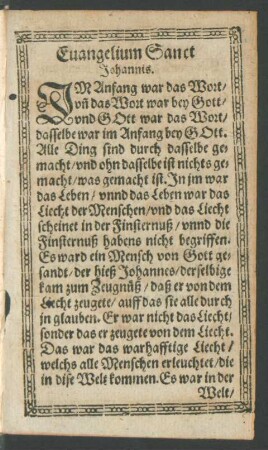 Euangelium Sanct
Johannis.
IM Anfang war das Wort/
vñ das Wort war bey Gott/
vnd GOtt war das Wort/
dasselbe war im Anfang bey GOtt.
Alle Ding sind durch dasselbe ge-
macht/vnd ohn dasselbe ist nichts ge-
macht/was gemacht ist. In jm war
das Leben/ vnnd das Leben war das
Liecht der Menschen/vnd das Liecht
scheinet in der Finsternuß/ vnnd die
Finsternuß habens nicht begriffen.
Es ward ein Mensch von Gott ge-
sandt/ der hieß Johannes/derselbige
kam zum Zeugnüß/ daß er von dem
Liecht zeugete/ auff das sie alle durch
jn glauben. Er war nicht das Liecht/
sonder das er zeugete von dem Liecht.
Das war das warhafftige Liecht/
welchs alle Menschen erleuchtet/die
in dise Welt kommen. Es war in der
Welt/